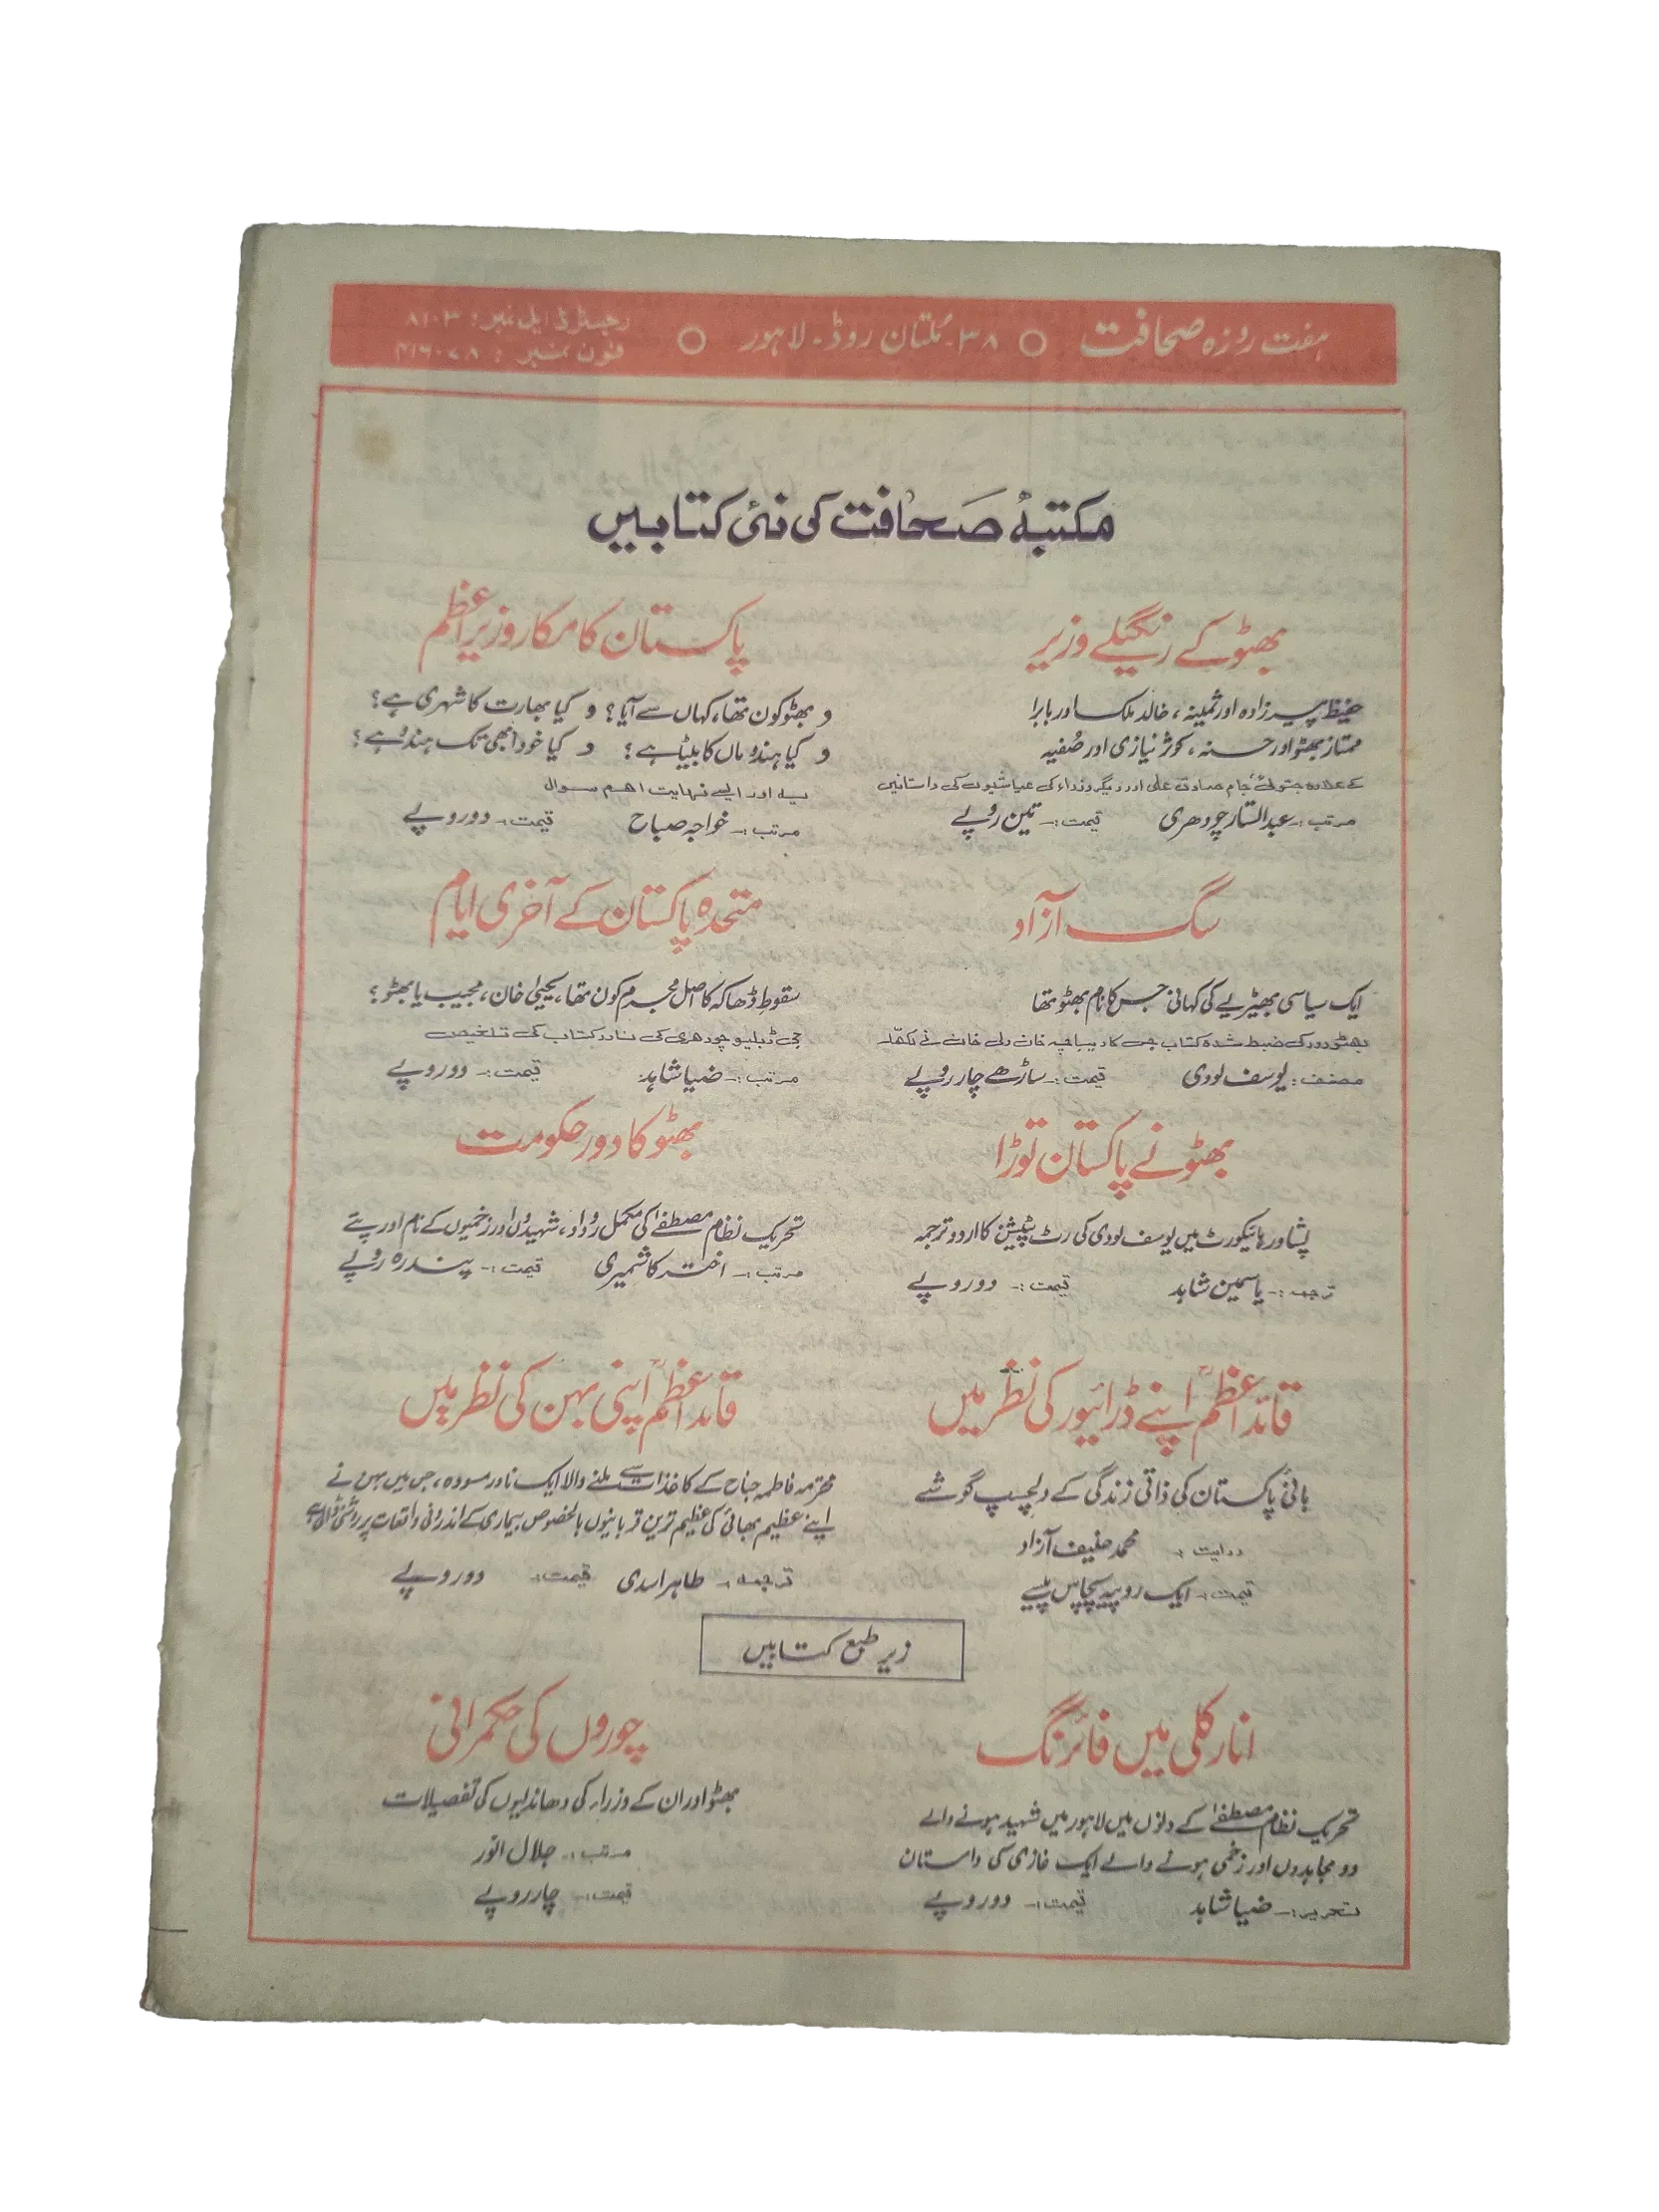 ہفت روزہ صحافت ○ ۳۸۔ ملتان روڈ۔ لاہور ○ رجسٹرڈ ایل نمبر: ۸۱۰۳
فون نمبر: ۴۱۶۰۷۸
مکتبۂ صحافت کی نئی کتابیں
بھٹو کے رنگیلے وزیر
حفیظ پیرزادہ اور ثمینہ، خالد ملک اور بابرا
ممتاز بھٹو اور حسنہ، کوثر نیازی اور صفیہ
کے علاوہ جتوئی، جام صادق علی اور دیگر وزراء کی عیاشیوں کی داستانیں
مرتب :۔ عبدالستار چودھری قیمت :۔ تین روپے
پاکستان کا مکار وزیراعظم
و بھٹو کون تھا، کہاں سے آیا؟ و کیا بھارت کا شہری ہے؟
و کیا ہندو ماں کا بیٹا ہے؟ و کیا خود ابھی تک ہندو ہے؟
یہ اور ایسے نہایت اہم سوال
مرتب :۔ خواجہ صباح قیمت :۔ دو روپے
سگ آزاد
ایک سیاسی بھیڑیے کی کہانی جس کا نام بھٹو تھا
بھٹو دور کی ضبط شدہ کتاب جس کا دیباچہ خان ولی خان نے لکھا
مصنف : یوسف لودی قیمت :۔ ساڑھے چار روپے
متحدہ پاکستان کے آخری ایام
سقوط ڈھاکہ کا اصل مجرم کون تھا، یحییٰ خان، مجیب یا بھٹو؟
جی ڈبلیو چودھری کی نادر کتاب کی تلخیص
مرتب :۔ ضیا شاہد قیمت :۔ دو روپے
بھٹو نے پاکستان توڑا
پشاور ہائیکورٹ میں یوسف لودی کی رٹ پٹیشن کا اردو ترجمہ
ترجمہ :۔ یاسمین شاہد قیمت :۔ دو روپے
بھٹو کا دور حکومت
تحریک نظام مصطفےٰ کی مکمل روداد، شہیدوں اور زخمیوں کے نام اور پتے
مرتب :۔ اختر کاشمیری قیمت :۔ پندرہ روپے
قائد اعظمؒ اپنے ڈرائیور کی نظر میں
بانئ پاکستان کی ذاتی زندگی کے دلچسپ گوشے
روایت :۔ محمد حنیف آزاد
قیمت :۔ ایک روپیہ پچاس پیسے
قائد اعظمؒ اپنی بہن کی نظر میں
محترمہ فاطمہ جناح کے کاغذات سے ملنے والا ایک نادر مسودہ، جس میں بہن نے
اپنے عظیم بھائی کی عظیم ترین قربانیوں بالخصوص بیماری کے اندرونی واقعات پر روشنی ڈالی ہے
ترجمہ :۔ طاہر اسدی قیمت :۔ دو روپے
زیر طبع کتابیں
انارکلی میں فائرنگ
تحریک نظام مصطفےٰ کے دنوں میں لاہور میں شہید ہونے والے
دو مجاہدوں اور زخمی ہونے والے ایک غازی کی داستان
تحریر :۔ ضیا شاہد قیمت :۔ دو روپے
چوروں کی حکمرانی
بھٹو اور ان کے وزراء کی دھاندلیوں کی تفصیلات
مرتب :۔ جلال انور
قیمت :۔ چار روپے